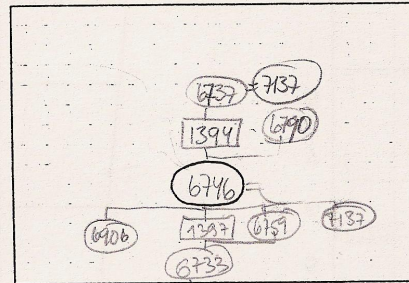 6737 = 7137
1394 6790
6746
6906 1397 6759 7137
6733